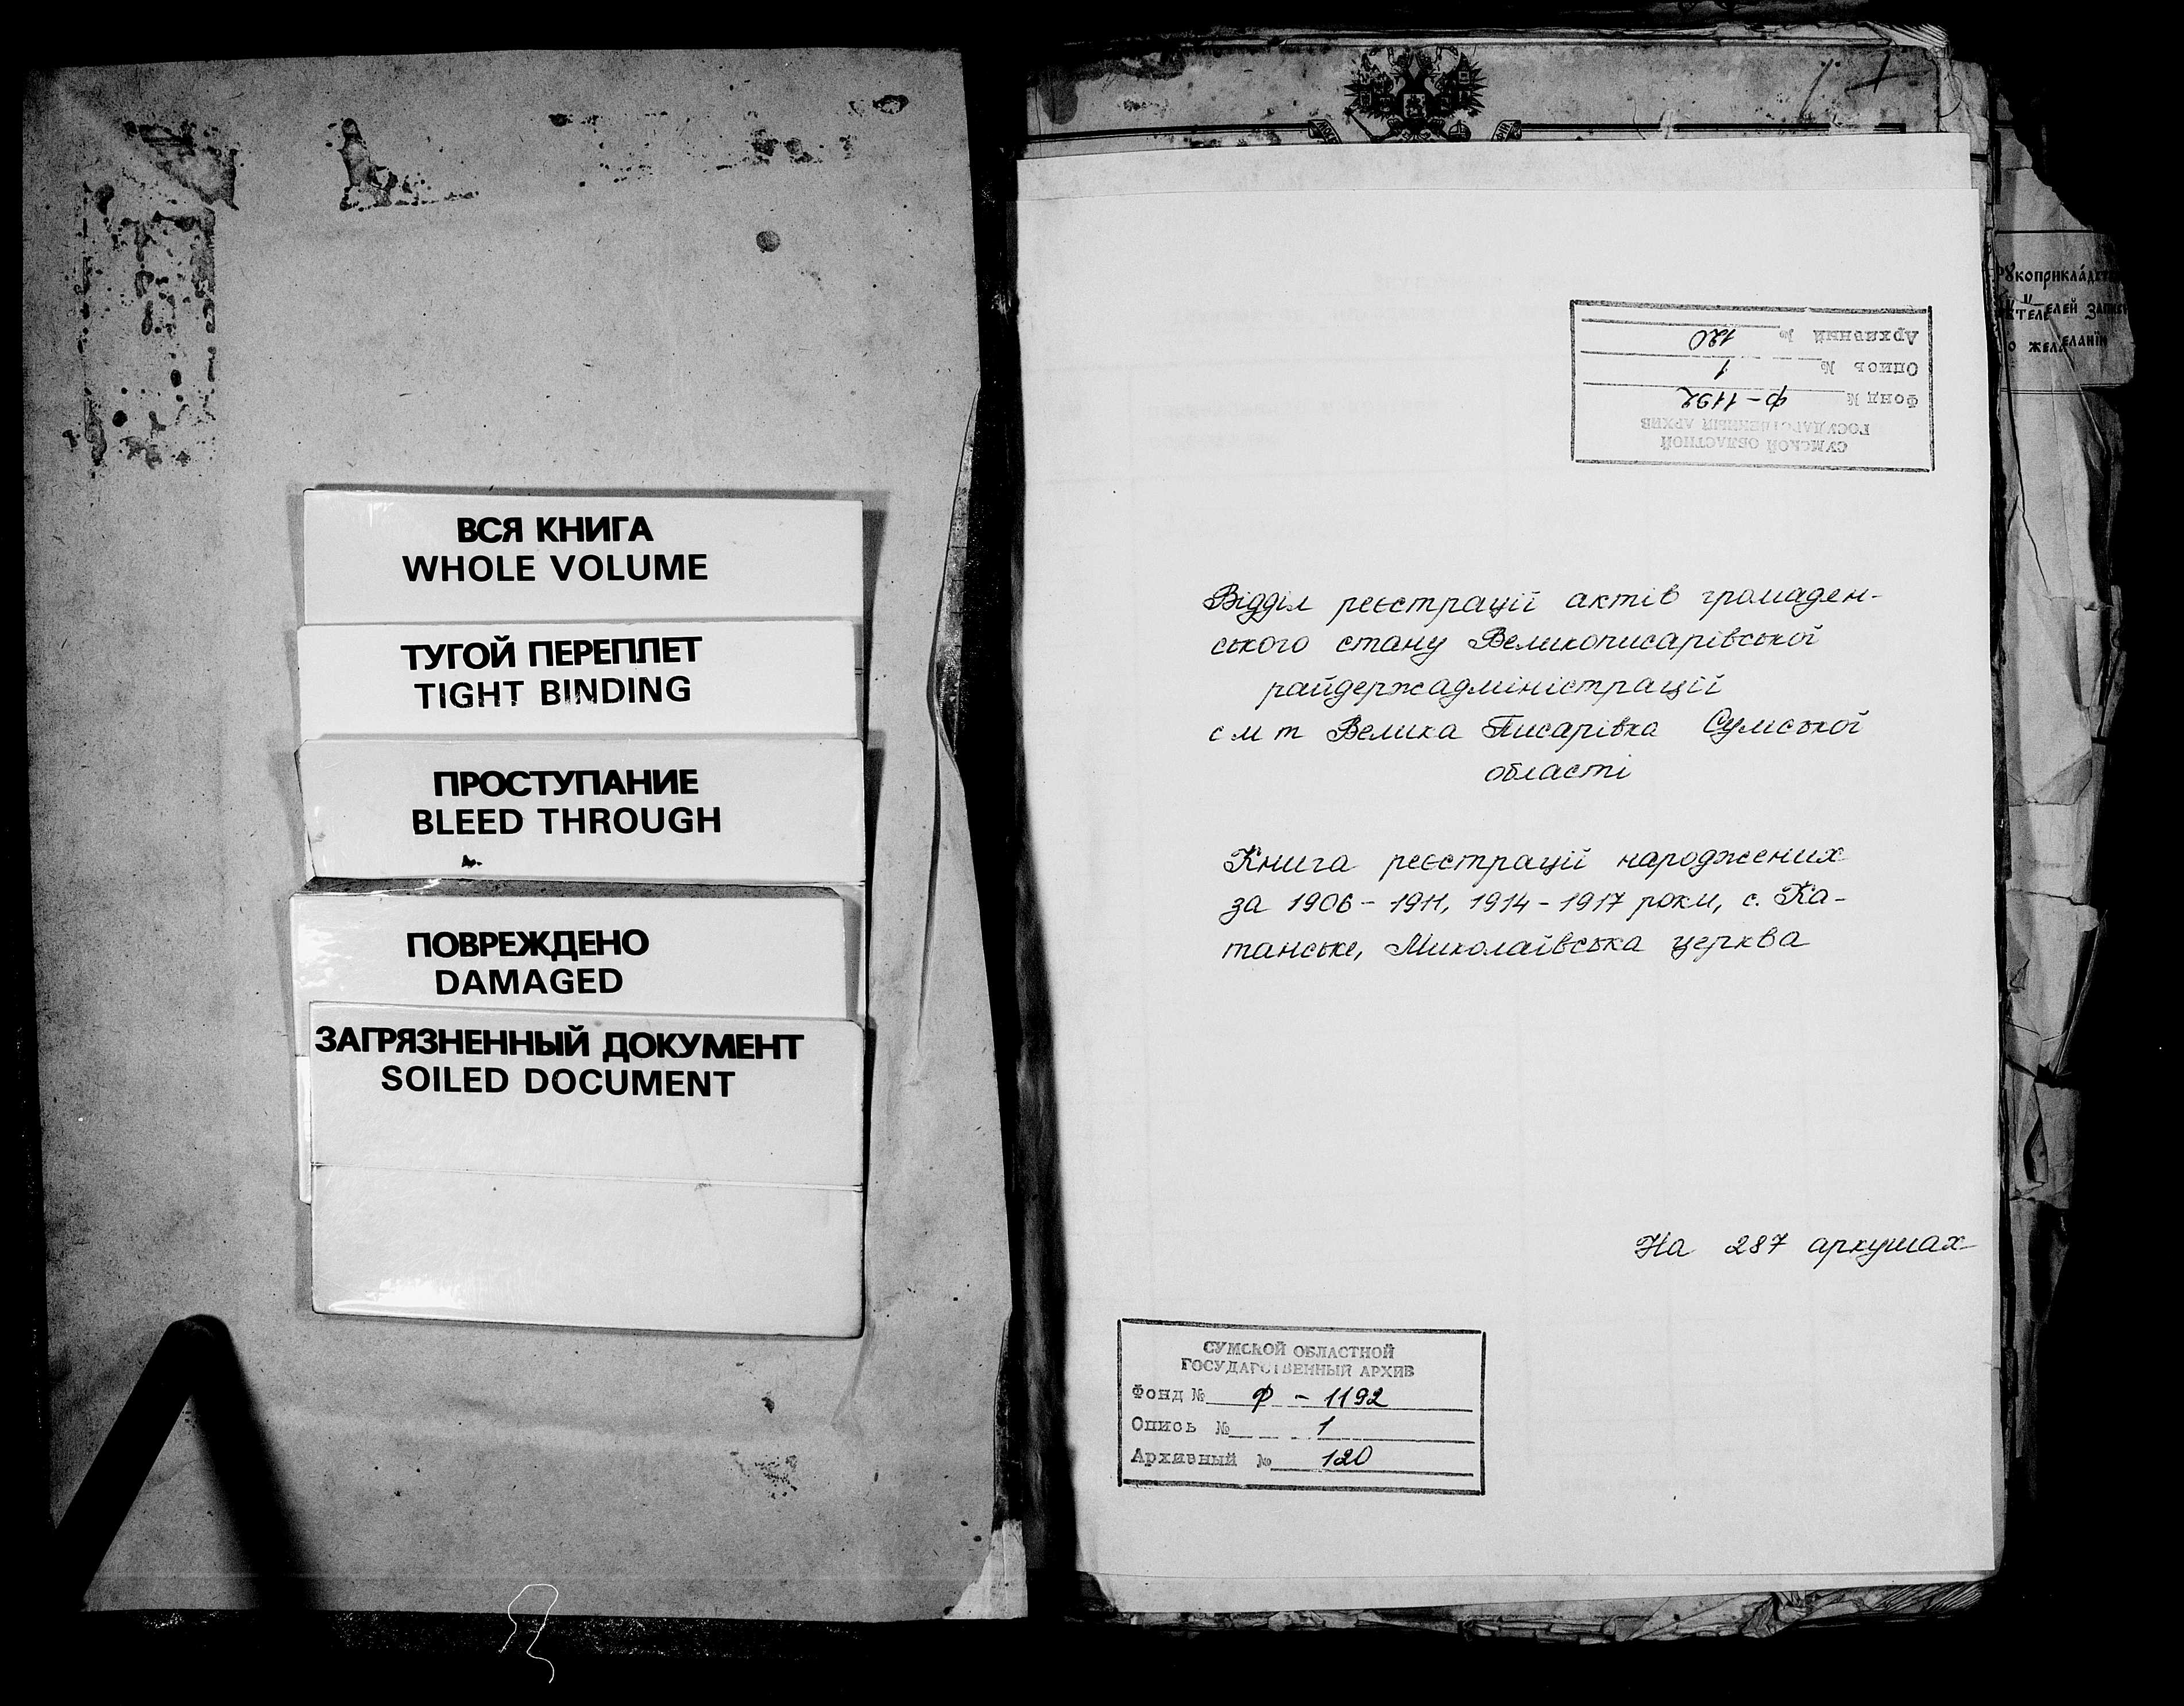 ВСЯ КНИГА
WHOLE VOLUME
ТУГОЙ ПЕРЕПЛЕТ
TIGHT BINDING
ПРОСТУПАНИЕ
BLEED THROUGH
ПОВРЕЖДЕНО
DAMAGED
ЗАГРЯЗНЕННЫЙ ДОКУМЕНТ
SOILED DOCUMENT
СУМСКОЙ ОБЛАСТНОЙ
ГОСУДАРСТВЕННЫЙ АРХИВ
Фонд № Ф-1192
Опись № 1
Архивный № 120
Відділ реєстрації актів громаден-
ського стану Великописарівської
райдержадміністрації
смт Велика Писарівка Сумської
області
Книга реєстрації народжених
за 1906-1911, 1914-1917 роки, с. Ка-
танське, Миколаївська церква
На 287 аркушах
СУМСКОЙ ОБЛАСТНОЙ
ГОСУДАРСТВЕННЫЙ АРХИВ
Фонд № Ф - 1192
Опись № 1
Архивный № 120